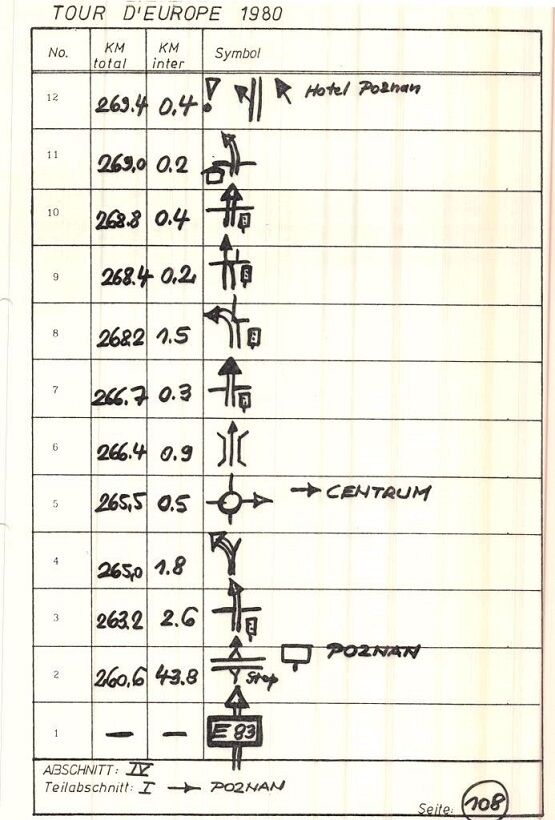 TOUR D'EUROPE 1980
No. KM total KM inter Symbol
12 269.4 0.4 Hotel Poznan
11 269.0 0.2
10 268.8 0.4
9 268.4 0.2
8 268.2 1.5
7 266.7 0.3
6 266.4 0.9
5 265,5 0.5 → CENTRUM
4 265,0 1.8
3 263.2 2.6
POZNAN
2 260,6 43.8 Stop
1 — — E 83
ABSCHNITT: IV
Teilabschnitt: I → POZNAN
Seite: 108